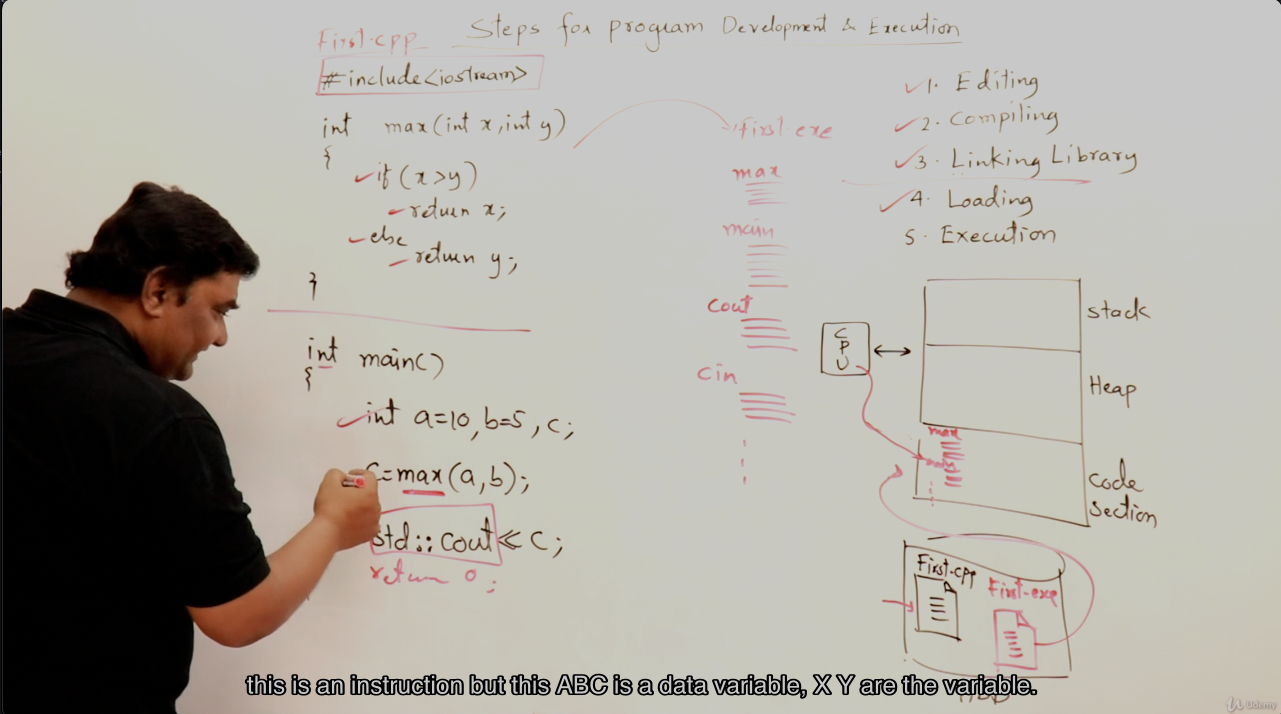 Steps for program Development & Execution
First.cpp
#include<iostream>
int max(int x, int y)
{
if (x>y)
return x;
else
return y;
}
int main()
{
int a=10, b=5, c;
c=max(a,b);
std::cout<<c;
return 0;
First.exe
max
main
cout
cin
1. Editing
2. Compiling
3. Linking Library
4. Loading
5. Execution
CPU
stack
Heap
max
main
code
section
First.cpp
First.exe
this is an instruction but this ABC is a data variable, X Y are the variable.
Udemy